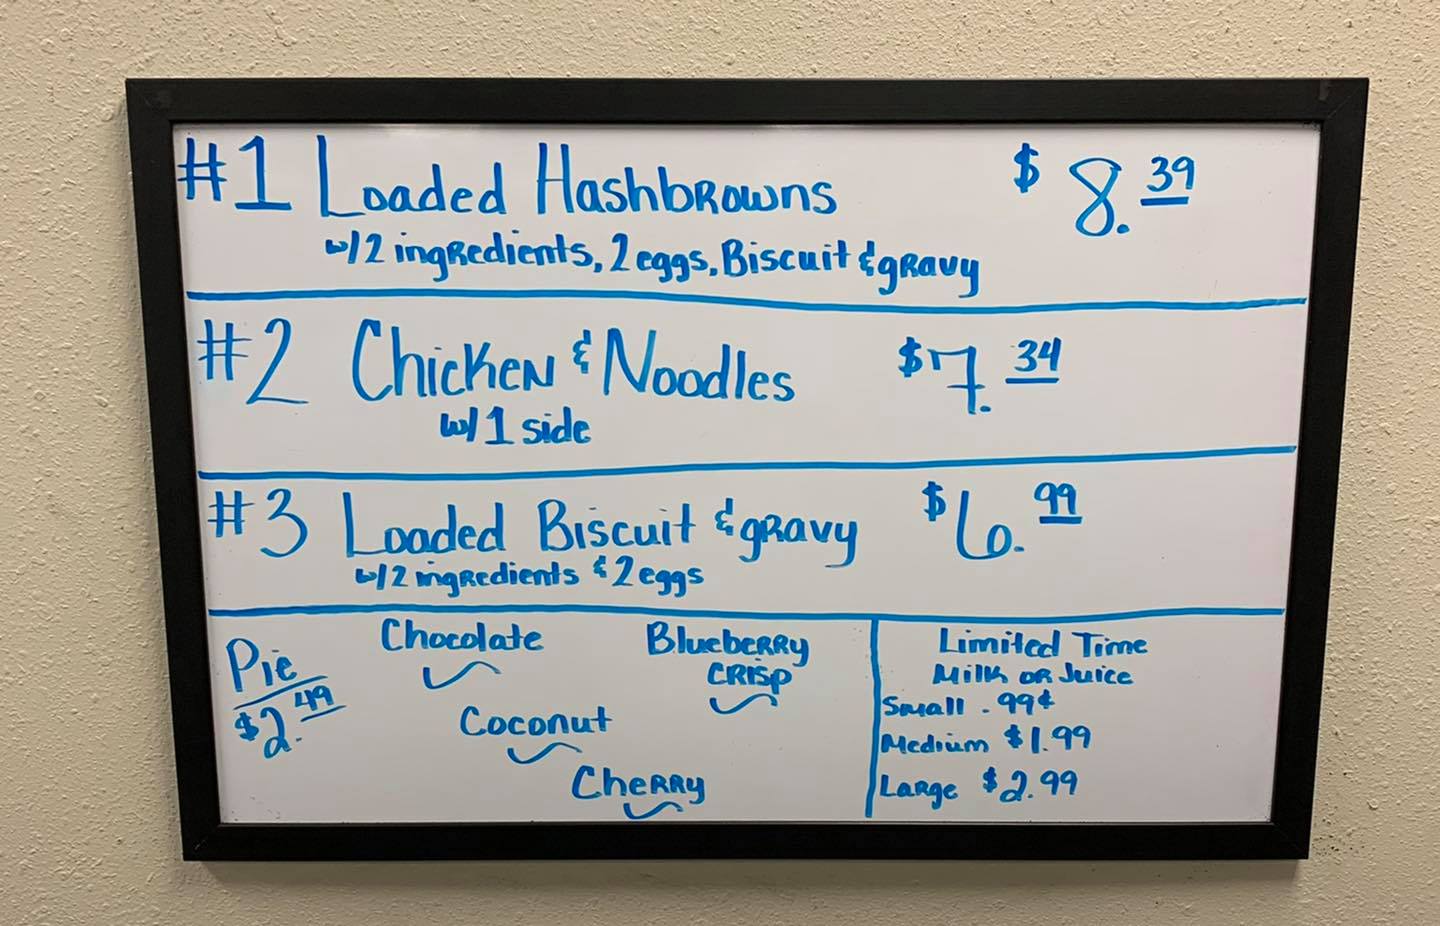 #1 Loaded Hashbrowns $8.39
w/2 ingredients, 2 eggs, Biscuit & gravy
#2 Chicken & Noodles $7.34
w/1 side
#3 Loaded Biscuit & gravy $6.99
w/2 ingredients & 2 eggs
Pie
$2.49
Chocolate
Blueberry
Crisp
Coconut
Cherry
Limited Time
Milk or Juice
Small .99¢
Medium $1.99
Large $2.99